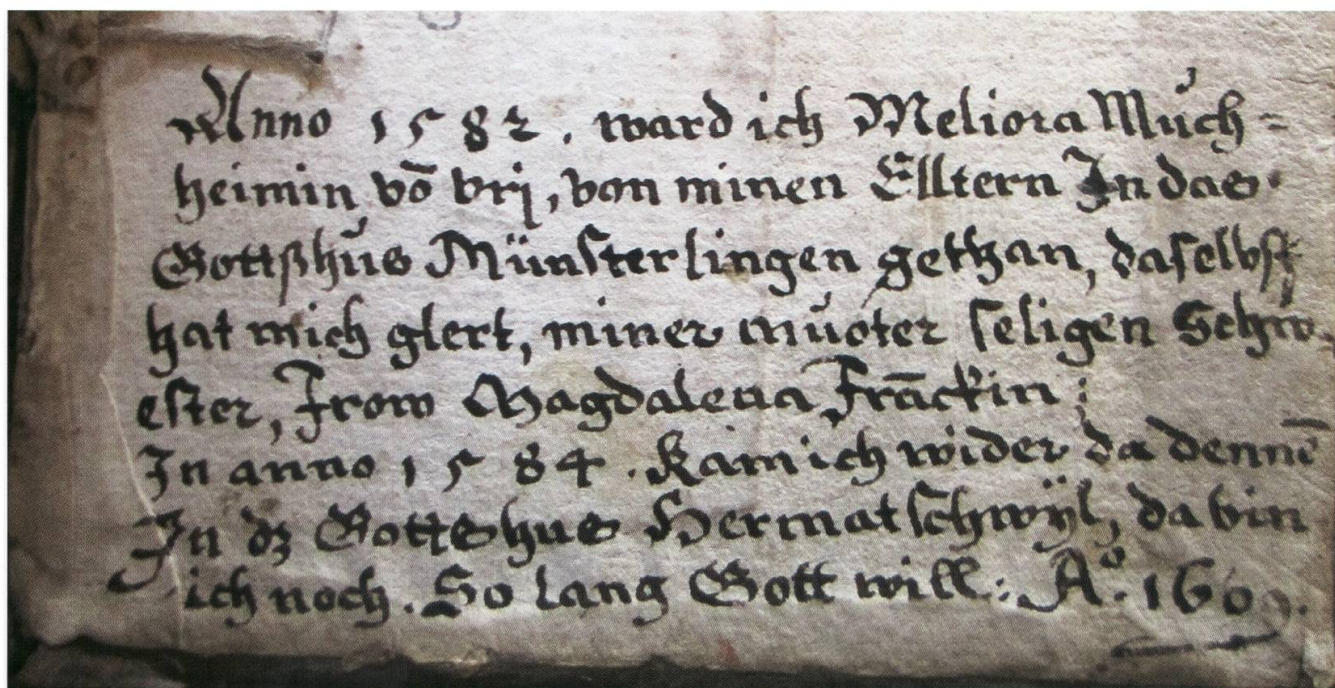 Anno 1582. ward ich Meliora Můch=
heimin vō Vrj, von minen Elltern In das
Gottßhůs Münsterlingen gethan, daselbst
hat mich glert, miner můoter seligen Schw=
ester, Frow Magdalena Frāckin:
In anno 1584. kam ich wider da dennē
In dz Gotteshus Hermatschwÿl, da bin
ich noch. So lang Gott will: Aº. 1609.